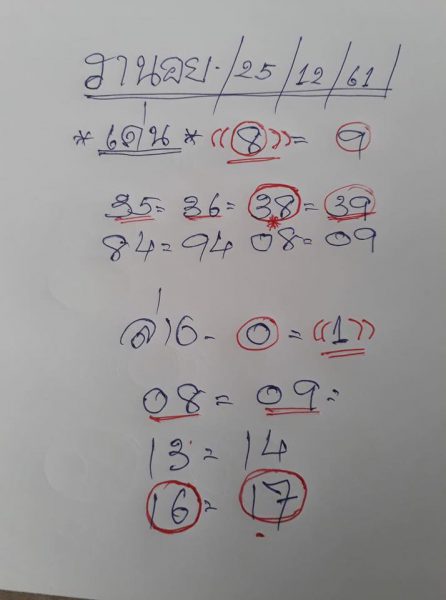 ฮานอย./25/12/61/
*เด่น* ((8))= 9
35= 36= 38= 39
84= 94 08= 09
ล่าง- 0= ((1))
08= 09=
13= 14
16= 17